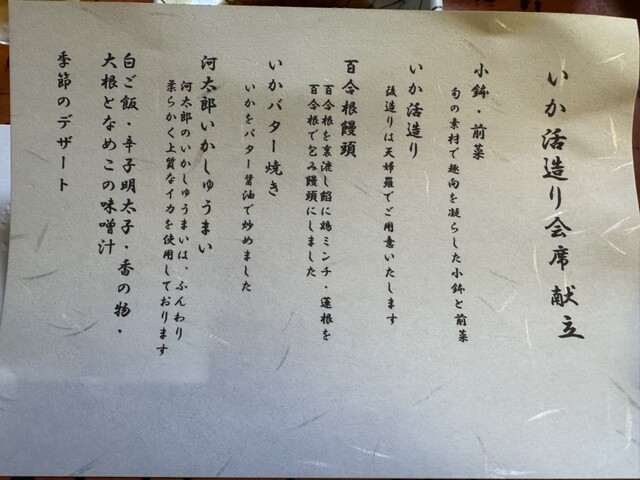 いか活造り会席献立
小鉢・前菜
旬の素材で趣向を凝らした小鉢と前菜
いか活造り
後造りは天婦羅でご用意いたします
百合根饅頭
百合根を裏漉し餡に鶏ミンチ・蓮根を
百合根で包み饅頭にしました
いかバター焼き
いかをバター醤油で炒めました
河太郎いかしゅうまい
河太郎のいかしゅうまいは、ふんわり
柔らかく上質なイカを使用しております
白ご飯・辛子明太子・香の物・
大根となめこの味噌汁
季節のデザート